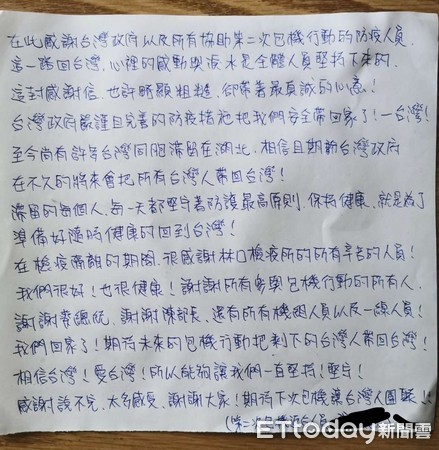 在此感謝台灣政府以及所有協助第二次包機行動的防疫人員,
這一路回台灣,心裡的感動與淚水是全體人員堅持下來的,
這封感謝信,也許略顯粗糙,卻帶著最真誠的心意!
台灣政府嚴謹且完善的防疫措施把我們安全帶回家了!一台灣!
至今尚有許多台灣同胞滯留在湖北,相信且期盼台灣政府
在不久的將來會把所有台灣人帶回台灣!
滯留的每個人,每一天都堅守著防護最高原則,保持健康,就是為了
準備好隨時健康的回到台灣!
在檢疫隔離的期間,很感謝林口檢疫所的所有辛苦的人員!
我們很好!也很健康!謝謝所有參與包機行動的所有人,
謝謝蔡總統,謝謝陳部長,還有所有機組人員以及一線人員!
我們回家了!期待未來的包機行動把剩下的台灣人帶回台灣!
相信台灣!愛台灣!所以能夠讓我們一直堅持!堅守!
感謝說不完,太多感受,謝謝大家!期待下次包機讓台灣人團聚!!
(第二次包機返台人員
ETtoday新聞雲